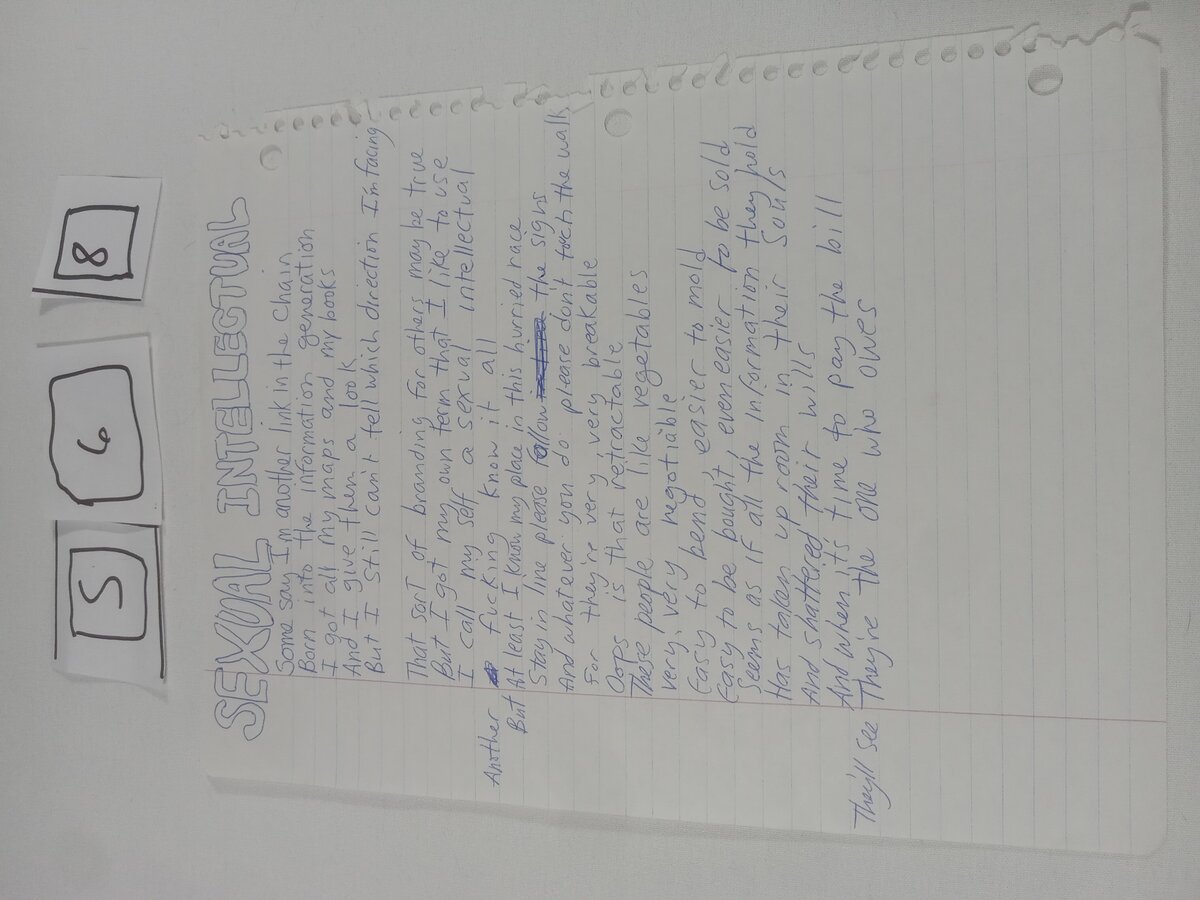 5 6 8
SEXUAL INTELLECTUAL
Some say I'm another link in the chain
Born into the information generation
I got all my maps and my books
And I give them a look
But I still can't tell which direction I'm facing
That sort of branding for others may be true
But I got my own term that I like to use
I call my self a sexual intellectual
Another fucking know it all
But At least I know my place in this hurried race
Stay in line please follow the signs
And whatever you do please don't touch the walls
For they're very, very breakable
Oops is that retractable
These people are like vegetables
very, very negotiable
Easy to bend, easier to mold
Easy to be bought, even easier to be sold
Seems as if all the information they hold
Has taken up room in their souls
And shattered their wills
And when it's time to pay the bill
They'll see They're the one who owes